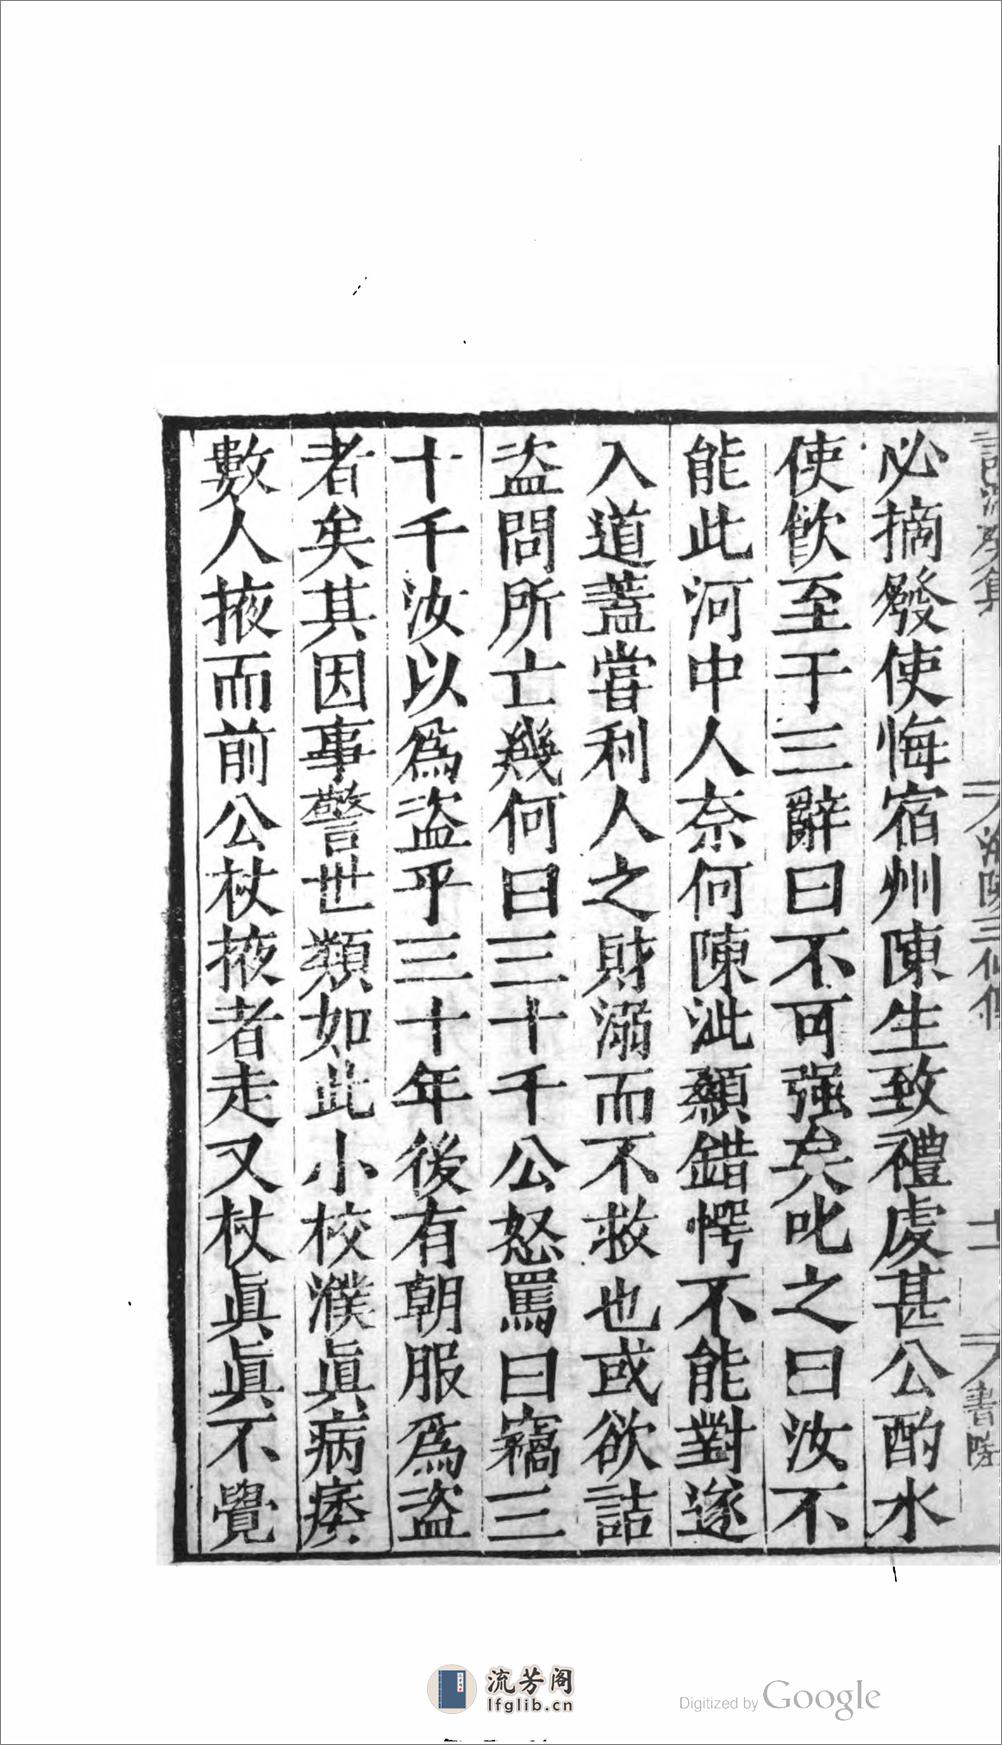 必摘發使悔宿州陳生致禮處甚公酌水
使飲至于三辭曰不可强矣叱之曰汝不
能此河中人奈何陳泚顙錯愕不能對遂
入道蓋嘗利人之財溺而不救也或欲詰
盗問所亡幾何曰三十千公怒罵曰竊三
十千汝以爲盗乎三十年後有朝服爲盗
者矣其因事警世類如此小校濮眞病痿
數人掖而前公杖掖者走又杖眞眞不覺
流芳阁
lfglib.cn
Digitized by Google